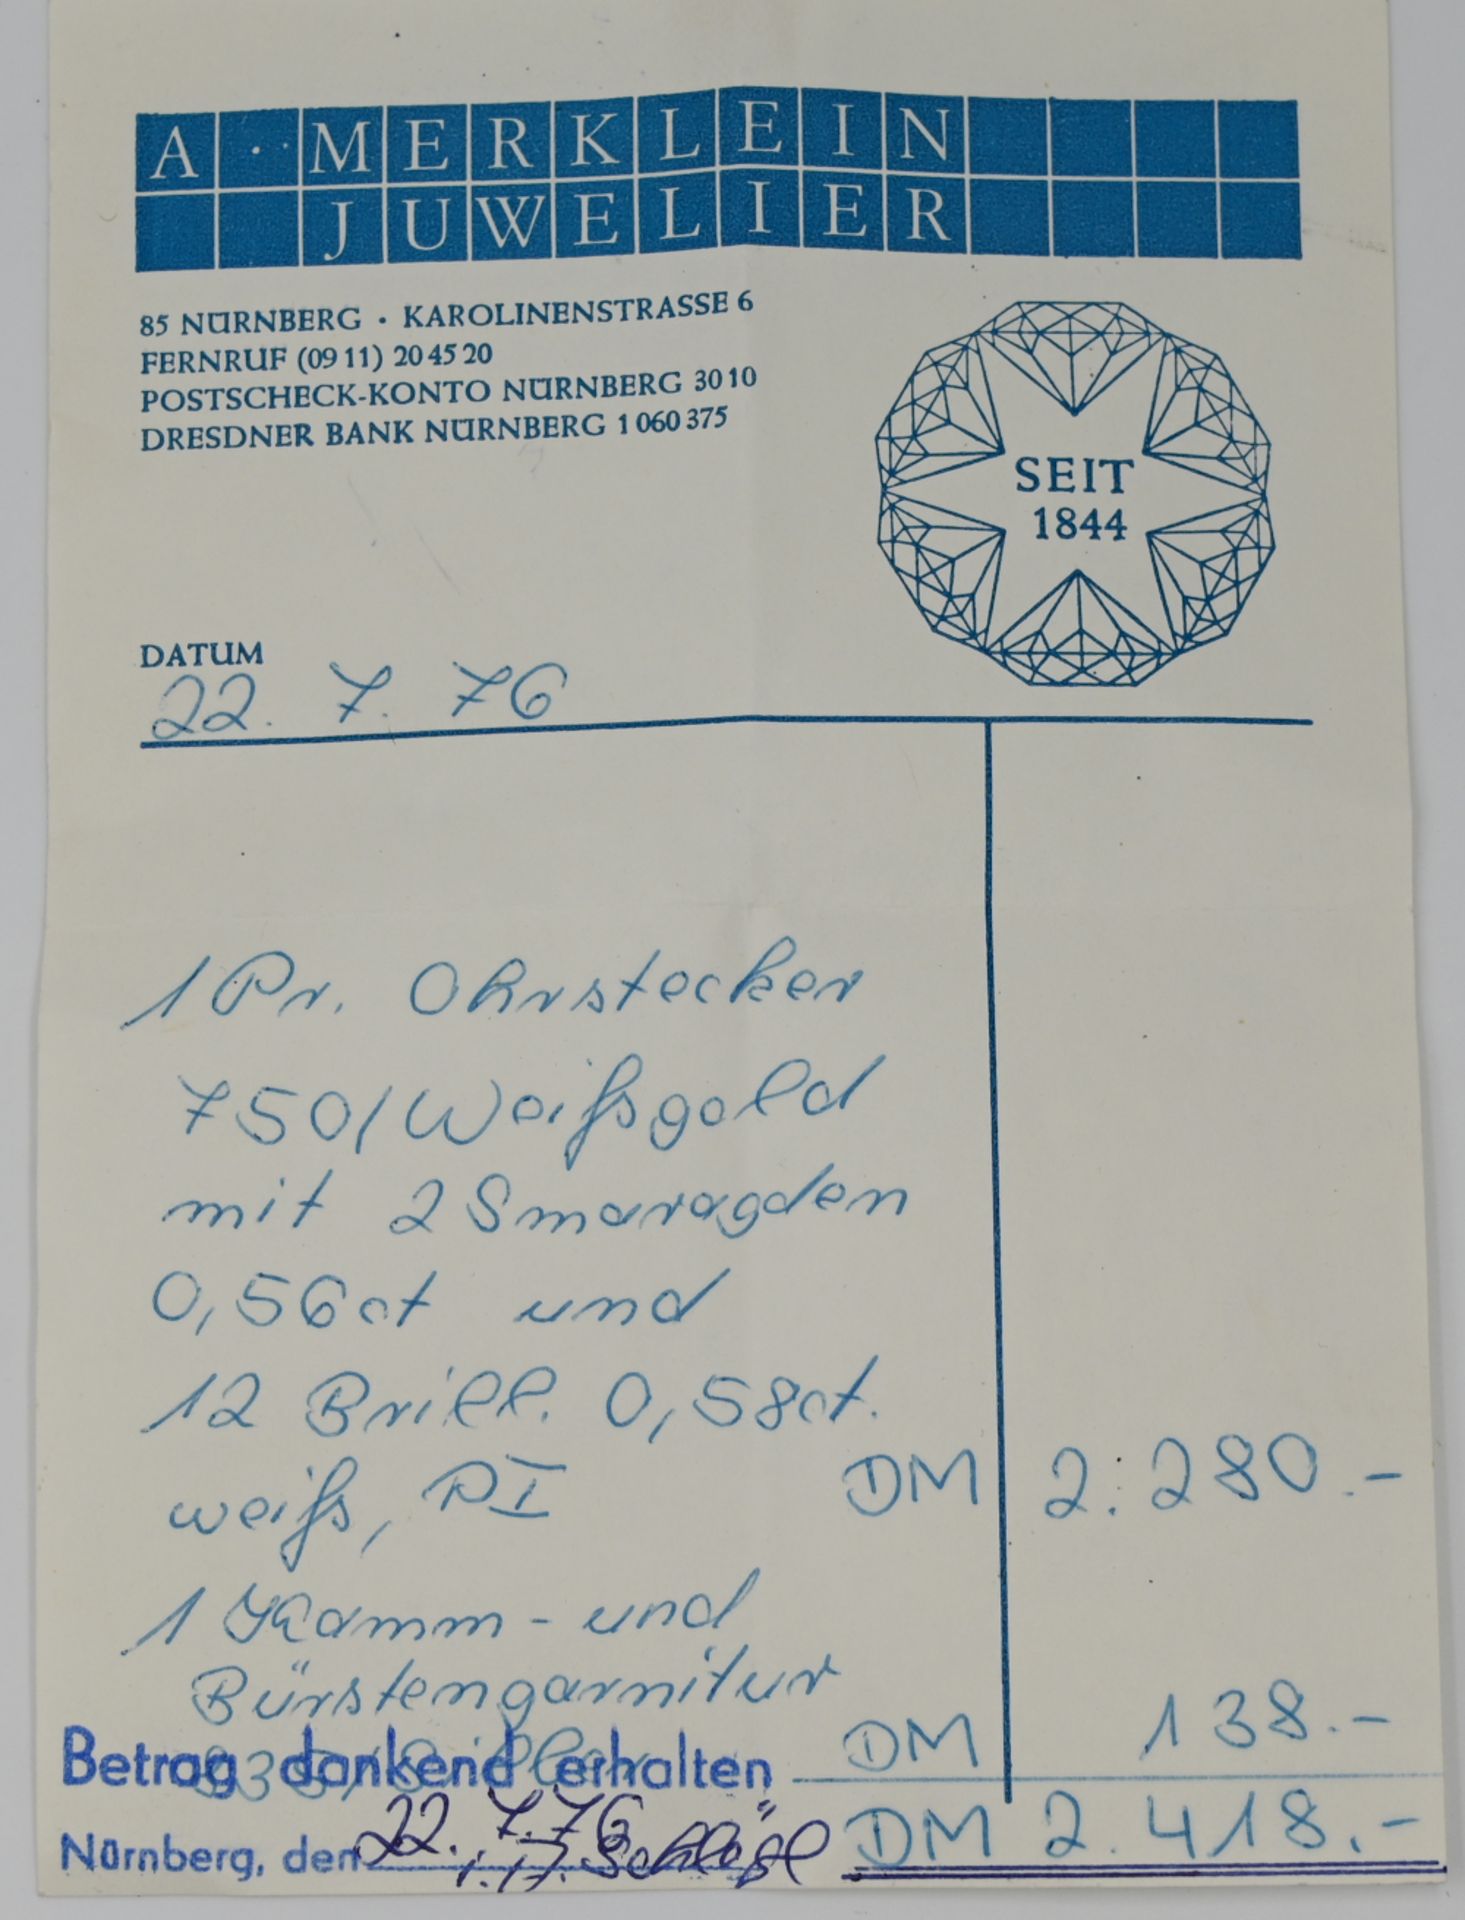 A. MERKLEIN
JUWELIER
85 NÜRNBERG · KAROLINENSTRASSE 6
FERNRUF (09 11) 20 45 20
POSTSCHECK-KONTO NÜRNBERG 30 10
DRESDNER BANK NÜRNBERG 1 060 375
SEIT
1844
DATUM
22. 7. 76
1 Pr. Ohrstecker
750/Weißgold
mit 2 Smaragden
0,56ct und
12 Brill. 0,58ct.
weiß, PI DM 2.280.-
1 Kamm- und
Bürstengarnitur
835/Silber DM 138.-
Betrag dankend erhalten
Nürnberg, den 22. 7. 76 DM 2.418.-